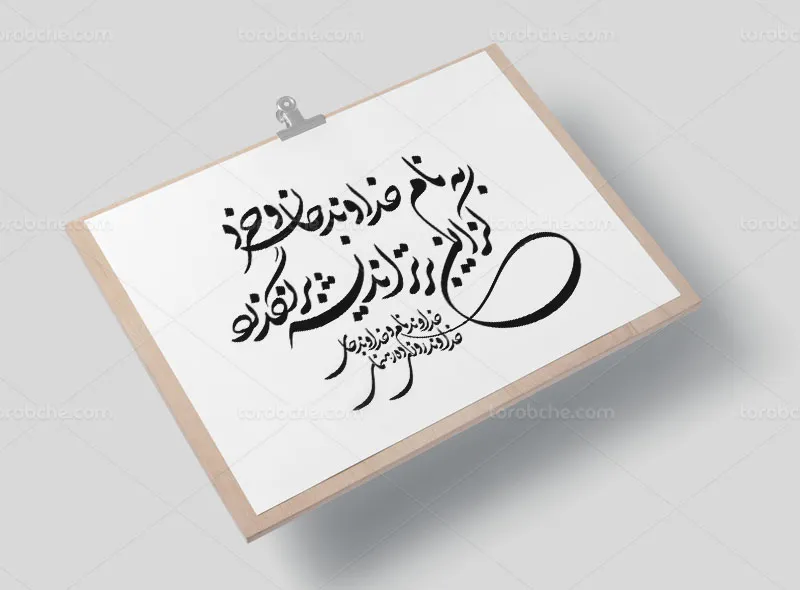 torobche.com torobche.com torobche.com
به نام خداوند جان و خرد
کز این برتر اندیشه برنگذرد
خداوند نام و خداوند جای
خداوند روزی ده رهنمای
torobche.com torobche.com torobche.com